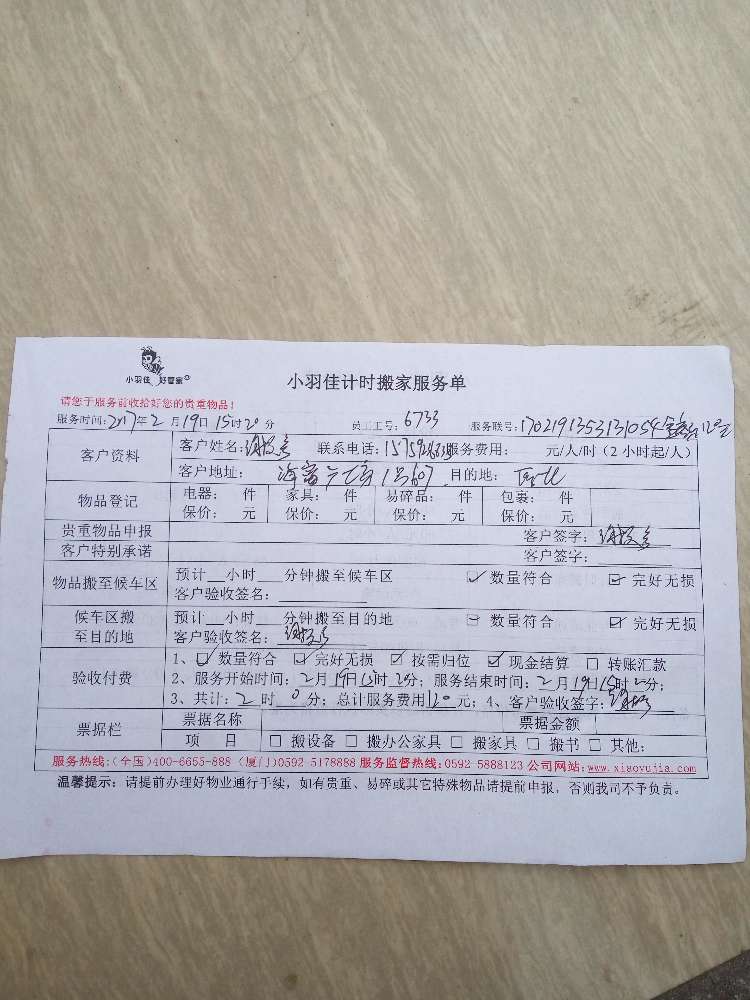 小羽佳 好管家
小羽佳计时搬家服务单
请您于服务前收给好您的贵重物品！
服务时间: 2017年2月19日15时20分 员工工号: 6733 服务联号: 1702191353131054 120元
客户资料 客户姓名: 联系电话: 服务费用: 元/人/时（2小时起/人）
客户地址: 1号607 目的地:
物品登记 电器: 件 家具: 件 易碎品: 件 包裹: 件
保价: 元 保价: 元 保价: 元 保价: 元
贵重物品申报 客户签字:
客户特别承诺 客户签字:
物品搬至候车区 预计__小时__分钟搬至候车区 ☑数量符合 ☑完好无损
客户验收签名:
候车区搬至目的地 预计__小时__分钟搬至目的地 ☑数量符合 ☑完好无损
客户验收签名:
验收付费 1、☑数量符合 ☑完好无损 ☑按需归位 ☑现金结算 □转账汇款
2、服务开始时间: 2月19日15时20分; 服务结束时间: 2月19日15时2分;
3、共计: 2时0分; 总计服务费用120元; 4、客户验收签字:
票据栏 票据名称 票据金额
项 目 □搬设备 □搬办公家具 □搬家具 □搬书 □其他:
服务热线:(全国)400-6655-888 (厦门)0592-5178888 服务监督热线:0592-5888123 公司网站:www.xiaoyujia.com
温馨提示: 请提前办理好物业通行手续，如有贵重、易碎或其它特殊物品请提前申报，否则我司不予负责。